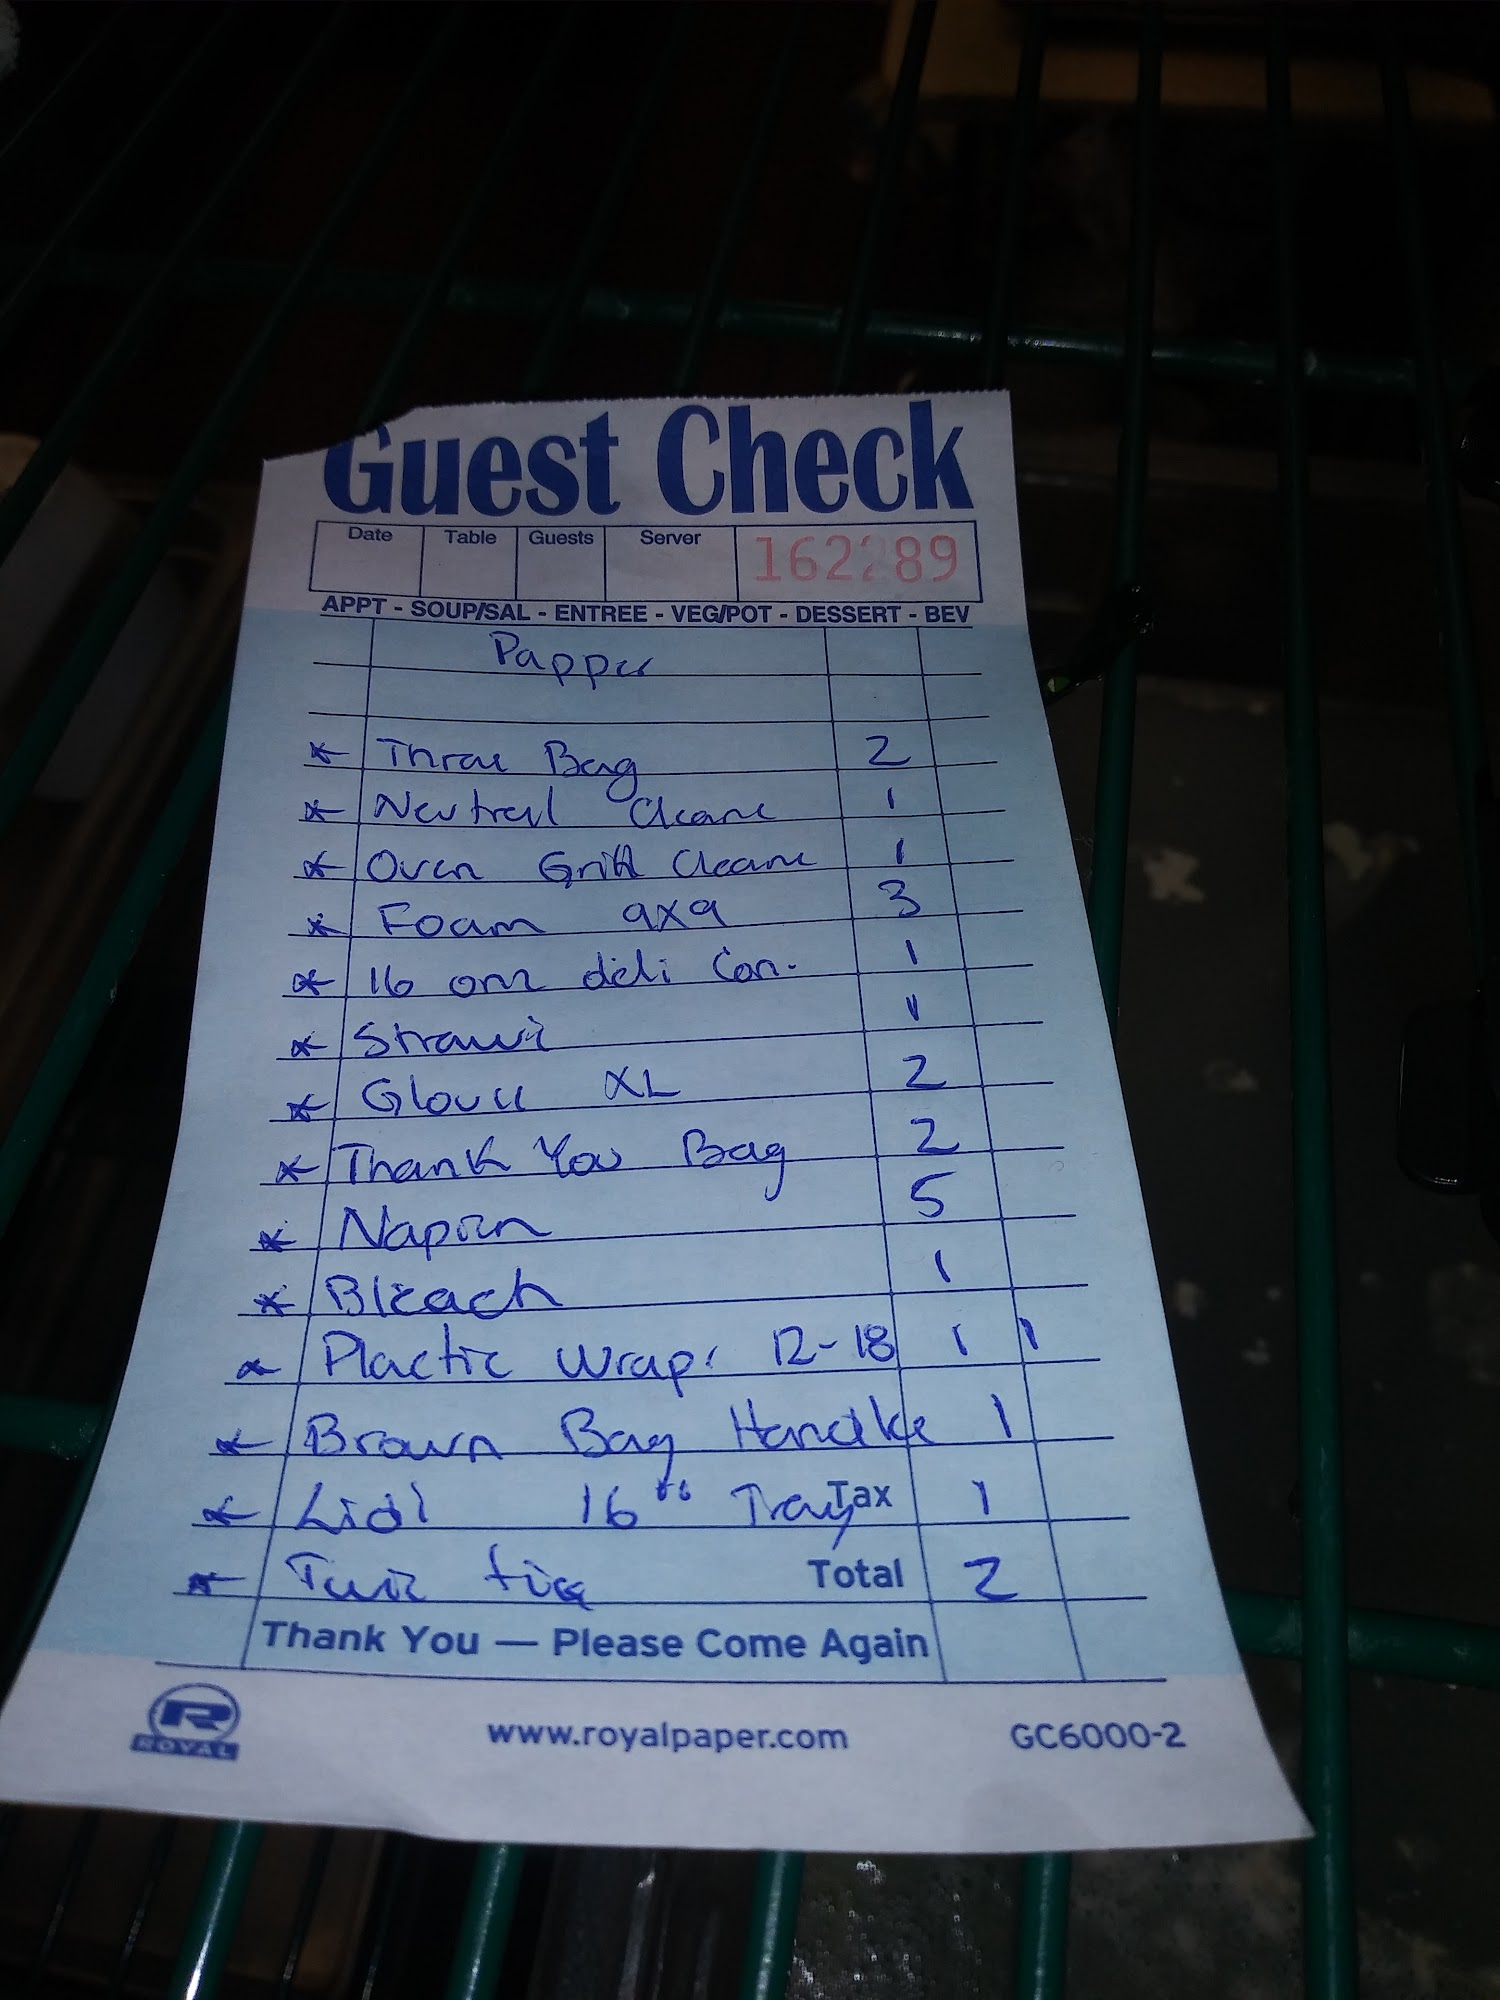 Guest Check
Date Table Guests Server
APPT - SOUP/SAL - ENTREE - VEG/POT - DESSERT - BEV
Bag 2
Neutral 1
Oven Grill 1
Foam 9x9 3
16 deli Con. 1
1
XL 2
Thank You Bag 2
5
Bleach 1
Wrap 12-18 1 1
Brown Bag Handle 1
16" Tray Tax 1
Total 2
Thank You — Please Come Again
R
ROYAL www.royalpaper.com GC6000-2